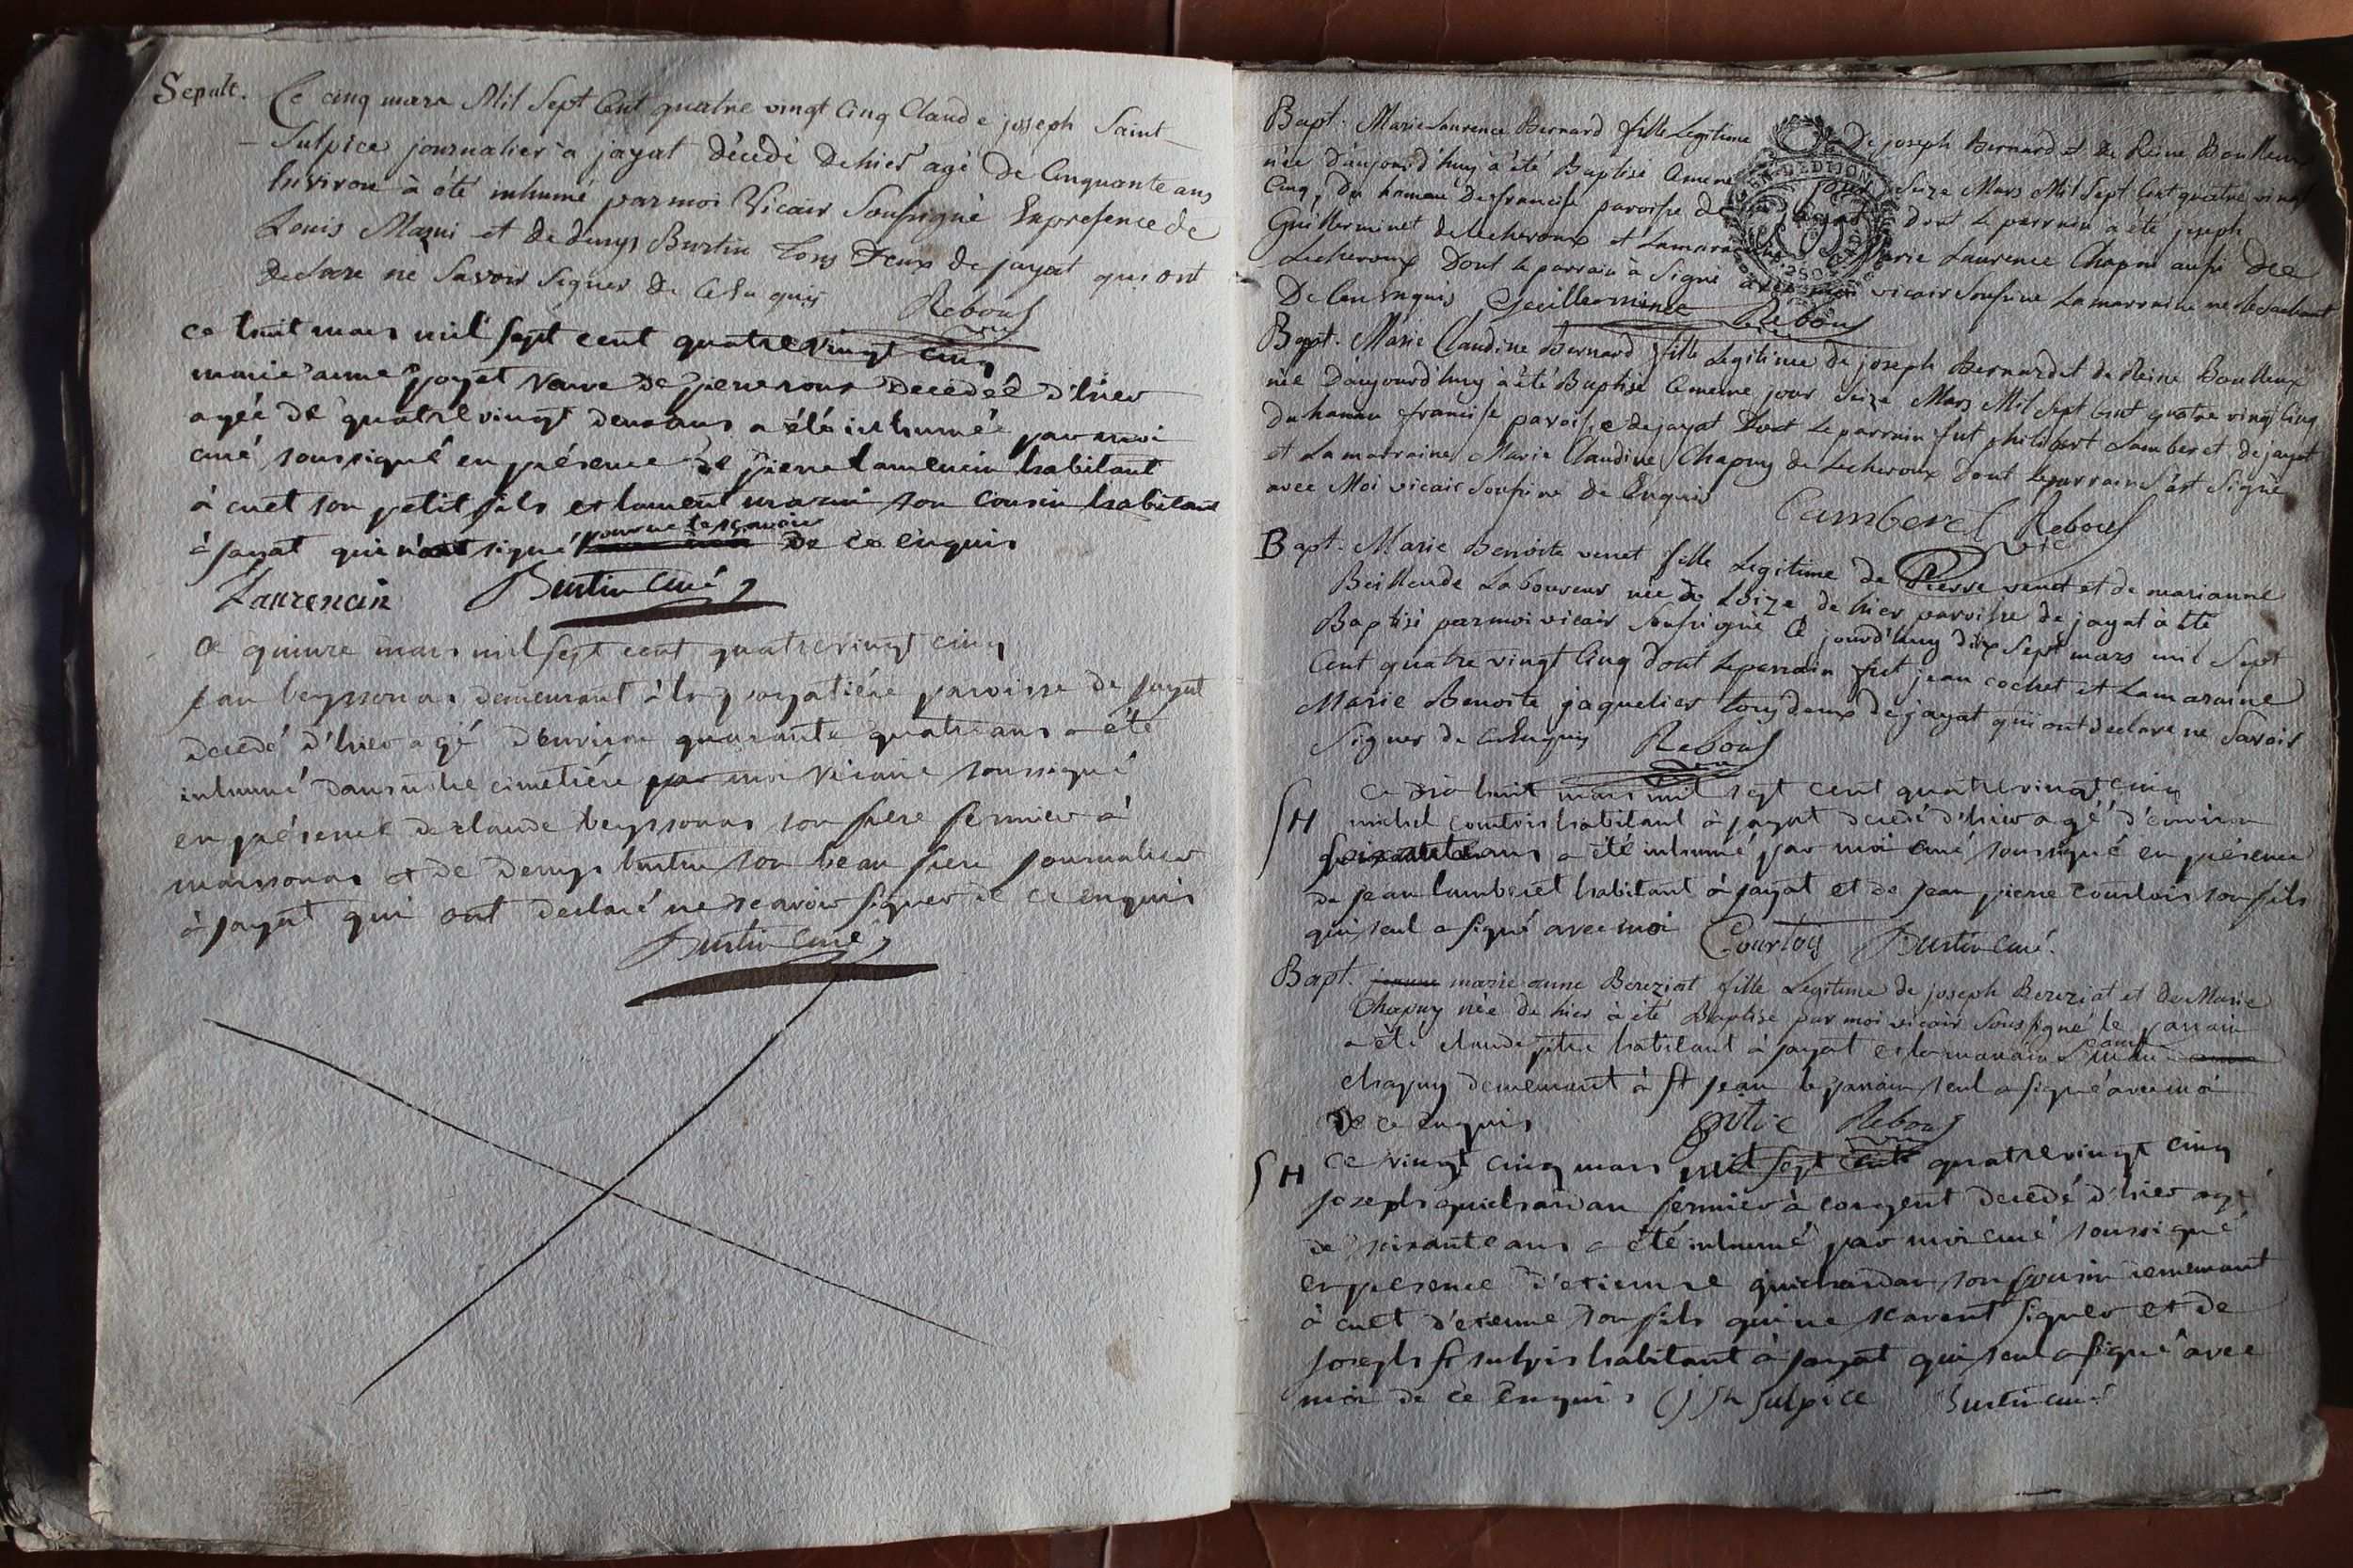 Sepult. Ce cinq mars Mil Sept Cent quatre vingt Cinq Claude joseph Saint
Sulpice journalier a jayat décédé dehier agé de Cinquante ans
Environ à été inhumé par moi Vicair Soussigné En presence de
Louis Mazui et de denys Burtin Tous Deux de jayat qui ont
declare ne Savoir Signer de ce Enquis Reboul vic
ce huit mars mil sept cent quatre vingt cinq
marie anne payet veuve de pierre roux decedée d'hier
agée de quatre vingt deux ans a été inhumée par moi
curé soussigné en présence de pierre laurencin habitant
à cuet son petit fils et laurent mazui son cousin habitant
à jayat qui n'a signé pour ne le sçavoir de ce enquis
Laurencin Burtin curé
ce quinze mars mil sept cent quatre vingt cinq
jean beyssonas demeurant à la payatière paroisse de jayat
decedé d'hier agé d'environ quarante quatre ans a été
inhumé dans notre cimetière par moi vicaire soussigné
en présence de claude beyssonas son frere fermier à
maissonas et de denys burtin son beau frere journalier
à jayat qui ont declaré ne scavoir signer de ce enquis
Burtin curé
Bapt. Marie Laurence Bernard fille Legitime de joseph Bernard et de Reine Boulleux
née d'aujourd'huy à été Baptisé Ce meme jour Seize Mars Mil Sept Cent quatre vingt
Cinq, du hamau de francise paroisse de jayat dont Le parrain à été joseph
Guillerminet de Lecheroux et La marraine Marie Laurence Chapuy aussi de
Lecheroux Dont le parrain à Signé avec moi vicair Soussiné La marraine ne le sachant
De Ce Enquis Guilleminet Reboul
Bapt. Marie Claudine Bernard fille Legitime de joseph Bernard et de Reine Boulleux
née d'aujourd'huy à été Baptisé Ce meme jour Seize Mars Mil Sept Cent quatre vingt Cinq
du hamau francise paroisse de jayat Dont Le parrain fut philibert Lamberet de jayat
et La marraine Marie Claudine Chapuy de Lecheroux Dont Le parrain S'est Signé
avec Moi vicair Soussiné de Enquis Lamberet Reboul vic
Bapt. Marie Benoite venet fille Legitime de Pierre venet et de marianne
Laboureur née de Loize de hier paroisse de jayat à été
Baptisé par moi vicair Soussigné Ce jourd'huy dix Sept mars mil Sept
Cent quatre vingt Cinq dont Le parrain fut jean cochet et La maraine
Marie Benoite jaquelier tous deux de jayat qui ont declare ne Savoir
Signer de ce Enquis Reboul vic
SH ce dix huit mars mil sept cent quatre vingt cinq
michel courtois habitant à jayat decedé d'hier agé d'environ
soixante ans a été inhumé par moi curé soussigné en présence
de jean lamberet habitant à jayat et de jean pierre courtois son fils
qui seul a signé avec moi Courtois Burtin curé.
Bapt. marie anne Bereziat fille Legitime de joseph Bereziat et de Marie
Chapuy née de hier à été Baptisé par moi vicair Soussigné le parrain
a été claude pitre habitant à jayat et la maraine
chapuy demeurant à st jean le parrain seul a signé avec moi
de ce enquis pitre Reboul vic
SH ce vingt cinq mars mil sept cent quatre vingt cinq
joseph guichardan fermier à congent decedé d'hier agé
de soixante ans a été inhumé par moi curé soussigné
en presence d'etienne guichardan son cousin demeurant
à cuet d'etienne son fils qui ne scavent signer et de
joseph st sulpis habitant à jayat qui seul a signé avec
moi de ce enquis J St Sulpice Burtin curé